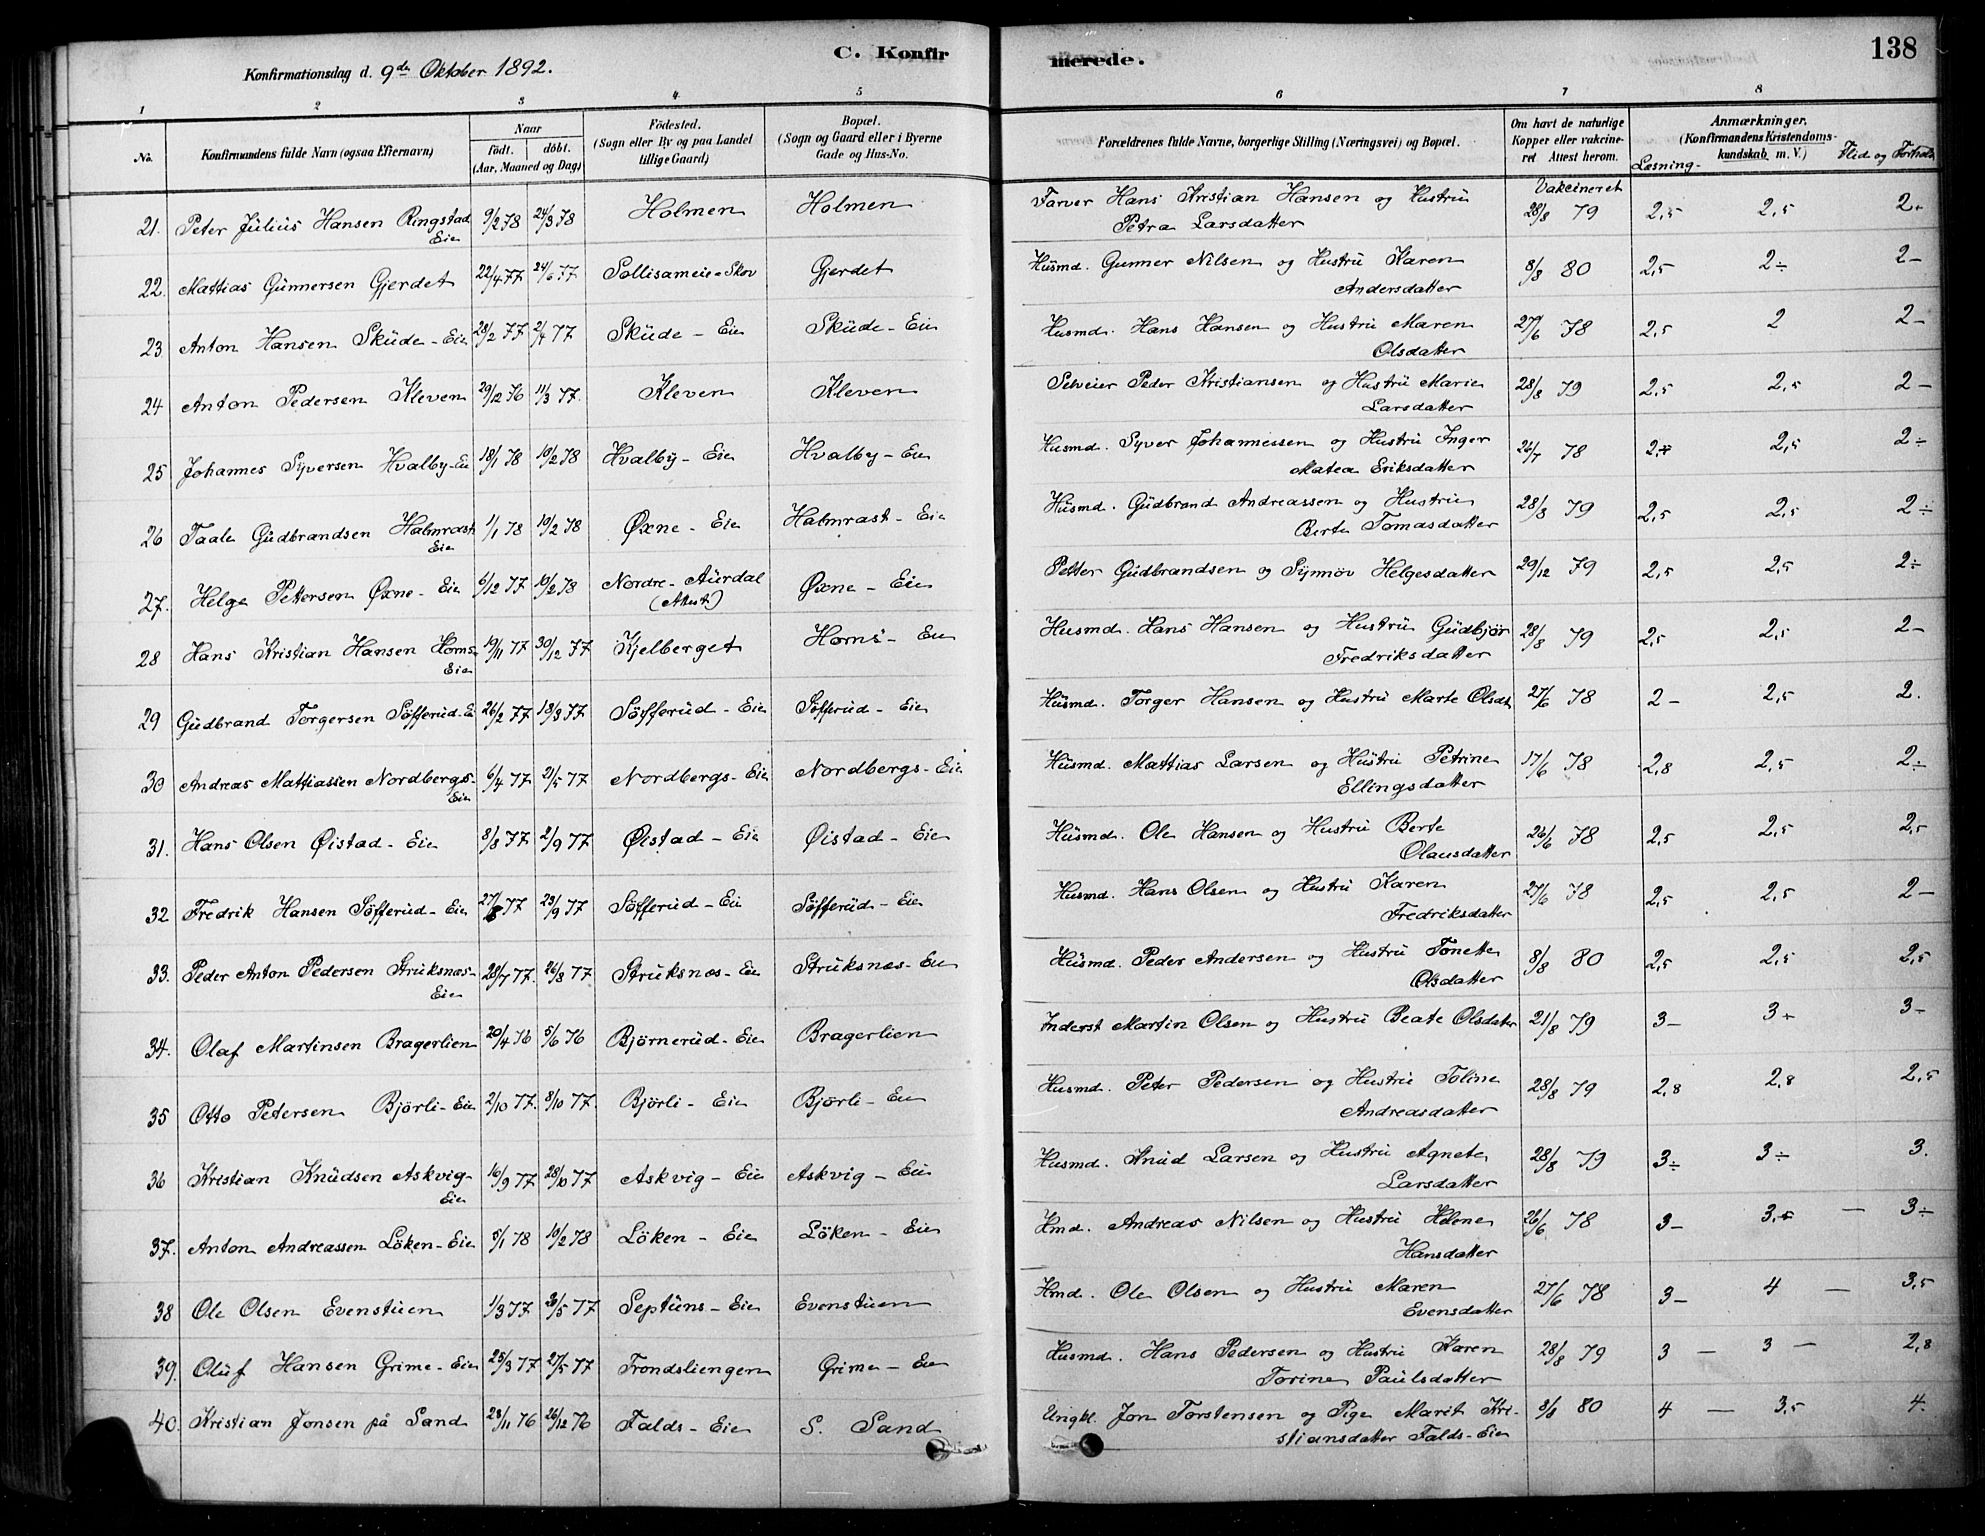 C. Konfirmerede.
138
Konfirmationsdag d. 9de Oktober 1892.
1 2 3 4 5 6 7 8
No.
Konfirmandens fulde Navn (ogsaa Efternavn)
Naar
födt. döbt.
(Aar, Maaned og Dag)
Födested.
(Sogn eller By og paa Landet
tillige Gaard)
Bopæl.
(Sogn og Gaard eller i Byerne
Gade og Hus-No.
Forældrenes fulde Navne, borgerlige Stilling (Næringsvei) og Bopæl.
Om havt de naturlige
Kopper eller vakcine-
ret Attest herom.
Anmærkninger.
(Konfirmandens Kristendoms-
kundskab m. V.)
Læsning- Flid og Forhold
Vakcineret
21. Peter Julius Hansen Ringstad 9/2 78 24/3 78 Holmen Holmen Farver Hans Kristian Hansen og Hustru 28/8 79 2,5 2,5 2+
Eie Petra Larsdatter
22. Mattias Gunnersen Gjerdet 22/4 77 24/6 77 Sollisameie-Skov Gjerdet Husmd. Gunner Nilsen og Hustru Karen 8/8 80 2,5 2÷ 2-
Andersdatter
23 Anton Hansen Skude-Eie 28/2 77 2/4 77 Skude-Eie Skude-Eie Husmd. Hans Hansen og Hustru Maren 27/6 78 2,5 2 2-
Olsdatter
24 Anton Pedersen Kleven 29/12 76 11/3 77. Kleven Kleven Selveier Peder Kristiansen og Hustru Marie 28/8 79 2,5 2,5 2-
Larsdatter
25 Johannes Syversen Hvalby-Eie 18/1 78 10/2 78 Hvalby-Eie Hvalby-Eie Husmd. Syver Johannessen og Hustru Inger 26/7 78 2,+ 2,5 2÷
Matea Eriksdatter
26 Taale Gudbrandsen Halmrast 1/1 78 10/2 78 Øxne-Eie Halmrast-Eie Husmd. Gudbrand Andreassen og Hustru 28/8 79 2,5 2,5 2÷
Eie Berte Tomasdatter
27. Helge Pettersen Øxne-Eie 6/12 77 10/2 78 Nordre-Aurdal Øxne-Eie Petter Gudbrandsen og Synnøv Helgesdatter 29/12 79 2,5 2,5 2÷
(Attest)
28 Hans Kristian Hansen Horns- 19/11 77 30/12 77 Kjelberget Horns-Eie Husmd. Hans Hansen og Hustru Gudbjør 28/8 79 2,5 2,5 2-
Eie Fredriksdatter
29 Gudbrand Torgersen Söfferud-Eie 26/2 77 18/3 77 Söfferud-Eie Söfferud-Eie Husmd. Torger Hansen og Hustru Marte Olsdt 27/6 78 2- 2,5 2.
30 Andreas Mattiassen Nordbergs- 6/4 77 21/5 77 Nordbergs-Eie Nordbergs-Eie Husmd. Mattias Larsen og Hustru Petrine 17/6 78 2,8 2,5 2÷
Eie Ellingsdatter
31. Hans Olsen Øistad-Eie 8/8 77 2/9 77 Øistad-Eie Øistad-Eie Husmd. Ole Hansen og Hustru Berte 26/6 78 2,5 2,5 2,5
Olausdatter
32 Fredrik Hansen Söfferud-Eie 27/8 77 23/9 77 Söfferud-Eie Söfferud-Eie Husmd. Hans Olsen og Hustru Karen 27/6 78 2,5 2,5 2-
Fredriksdatter
33. Peder Anton Pedersen Struksnæs- 28/7 77. 26/8 77 Struksnæs-Eie Struksnæs-Eie Husmd. Peder Andersen og Hustru Tonette 8/8 80 2,5 2,5 2,5
Eie Olsdatter
34. Olaf Martinsen Bragerlien 20/4 76 5/6 76 Björnerud-Eie Bragerlien Inderst Martin Olsen og Hustru Beate Olsdatter 21/8 79 3- 3+ 3-
35 Otto Petersen Björli-Eie 2/10 77. 8/10 77. Björli-Eie Björli-Eie Husmd. Peter Pedersen og Hustru Toline 28/8 79 2,8 2,8 2,5
Andreasdatter
36 Kristian Knudsen Askvig- 16/9 77 28/10 77 Askvig-Eie Askvig-Eie Husmd. Knud Larsen og Hustru Agnete 28/8 79 3÷ 3÷ 3.
Eie Larsdatter
37. Anton Andreassen Löken-Eie 5/1 78 10/2 78 Löken-Eie Löken-Eie Hmd. Andreas Nilsen og Hustru Helene 26/6 78 3- 3,+ - 3÷
Hansdatter
38 Ole Olsen Evenstuen 1/3 77 20/5 77 Septuns-Eie Evenstuen Hmd. Ole Olsen og Hustru Maren 27/6 78 3- 4 - 3,5
Evensdatter
39. Oluf Hansen Grime-Eie 25/3 77 27/5 77 Trondsliengen Grime-Eie Husmd. Hans Pedersen og Hustru Karen 28/8 79 3 - 3 - 2,8
Torine Paulsdatter
40. Kristian Jonsen på Sand 28/11 76 26/12 76 Falds-Eie S. Sand Ungkl. Jon Torstensen og Pige Marit Kri- 8/8 80 4 - 3,5 4.
stiansdatter Falds-Eie